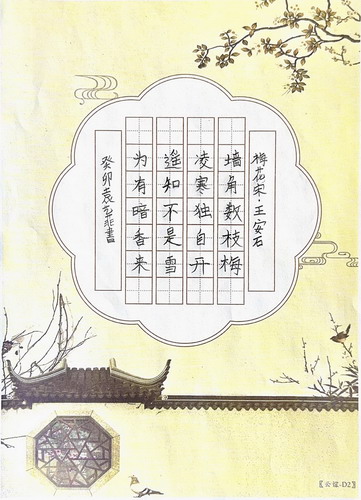 梅花宋·王安石
墙角数枝梅
凌寒独自开
遥知不是雪
为有暗香来
癸卯袁非書